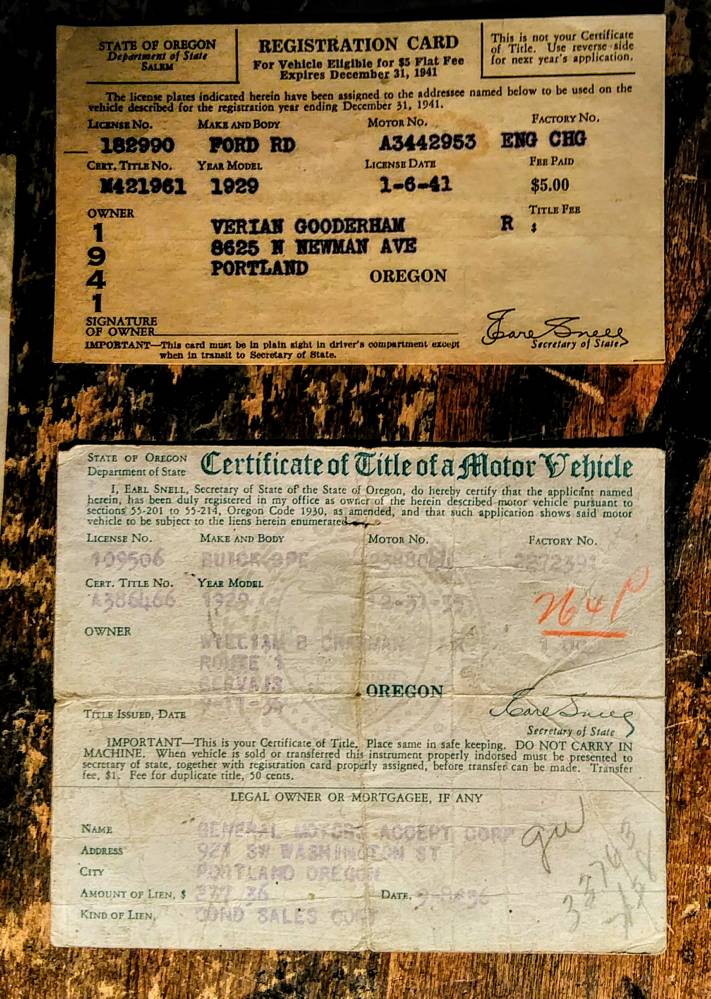 STATE OF OREGON
Department of State
SALEM
REGISTRATION CARD
For Vehicle Eligible for $5 Flat Fee
Expires December 31, 1941
This is not your Certificate
of Title. Use reverse side
for next year's application.
The license plates indicated herein have been assigned to the addressee named below to be used on the
vehicle described for the registration year ending December 31, 1941.
LICENSE NO. MAKE AND BODY MOTOR NO. FACTORY NO.
182990 FORD RD A3442953 ENG CHG
CERT. TITLE NO. YEAR MODEL LICENSE DATE FEE PAID
M421961 1929 1-6-41 $5.00
OWNER TITLE FEE
1941
VERIAN GOODERHAM R $
8625 N NEWMAN AVE
PORTLAND OREGON
SIGNATURE
OF OWNER
Earl Snell
Secretary of State
IMPORTANT—This card must be in plain sight in driver's compartment except
when in transit to Secretary of State.
STATE OF OREGON
Department of State
Certificate of Title of a Motor Vehicle
I, EARL SNELL, Secretary of State of the State of Oregon, do hereby certify that the applicant named
herein, has been duly registered in my office as owner of the herein described motor vehicle pursuant to
sections 55-201 to 55-214, Oregon Code 1930, as amended, and that such application shows said motor
vehicle to be subject to the liens herein enumerated
LICENSE NO. MAKE AND BODY MOTOR NO. FACTORY NO.
109506 BUICK
CERT. TITLE NO. YEAR MODEL
A386466 1929
264P
OWNER
WILLIAM B
ROUTE 1
GERVAIS
OREGON
TITLE ISSUED, DATE
Earl Snell
Secretary of State
IMPORTANT—This is your Certificate of Title. Place same in safe keeping. DO NOT CARRY IN
MACHINE. When vehicle is sold or transferred this instrument properly indorsed must be presented to
secretary of state, together with registration card properly assigned, before transfer can be made. Transfer
fee, $1. Fee for duplicate title, 50 cents.
LEGAL OWNER OR MORTGAGEE, IF ANY
NAME GENERAL MOTORS ACCEPT CORP
ADDRESS SW WASHINGTON ST
CITY PORTLAND OREGON
AMOUNT OF LIEN, $ DATE,
KIND OF LIEN, COND SALES CONT